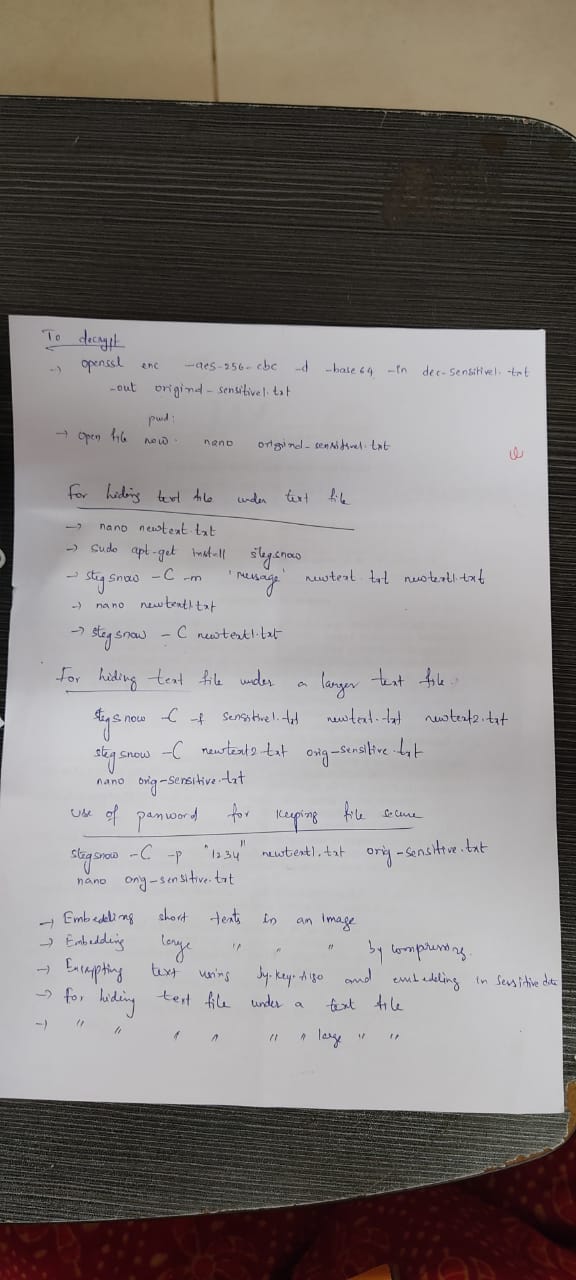 To decrypt
→ openssl enc -aes-256-cbc -d -base64 -in dec-sensitive1.txt
-out origind-sensitive1.txt
pwd:
→ open file now. nano origind-sensitive1.txt
For hiding text file under text file
→ nano newtext.txt
→ sudo apt-get install stegsnow
→ stegsnow -C -m 'message' newtext.txt newtext1.txt
→ nano newtext1.txt
→ stegsnow -C newtext1.txt
For hiding text file under a larger text file.
stegsnow -C -f sensitive1.txt newtext.txt newtext2.txt
stegsnow -C newtext2.txt orig-sensitive.txt
nano orig-sensitive.txt
Use of password for keeping file secure
stegsnow -C -p "1234" newtext1.txt orig-sensitive.txt
nano orig-sensitive.txt
→ Embedding short texts in an image
→ Embedding large " " " by compressing.
→ Encrypting text using sy-key-Algo and embedding in sensitive data
→ for hiding text file under a text file
→ " " " " " " large " "